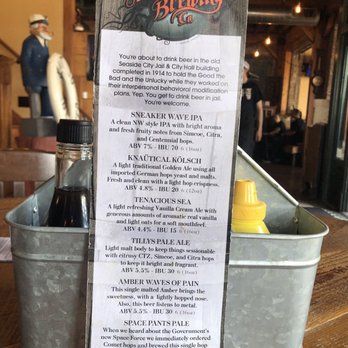 Brewing
Co
You're about to drink beer in the old
Seaside City Jail & City Hall building
completed in 1914 to hold the Good the
Bad and the Unlucky while they worked on
their interpersonal behavioral modification
plans. Yep. You get to drink beer in jail.
You're welcome.
SNEAKER WAVE IPA
A clean NW style IPA with bright aroma
and fresh fruity notes from Simcoe, Citra,
and Centennial hops.
ABV 7% - IBU 70 6 (16oz)
KNAÜTICAL KÖLSCH
A light traditional Golden Ale using all
imported German hops yeast and malts.
Fresh and clean with a light hop crispness.
ABV 4.8% - IBU 20 6 (12oz)
TENACIOUS SEA
A light refreshing Vanilla Cream Ale with
generous amounts of aromatic real vanilla
and light oats for a soft mouthfeel.
ABV 4.4% - IBU 15 6 (16oz)
TILLYS PALE ALE
Light malt body to keep things sessionable
with citrusy CTZ, Simcoe, and Citra hops
to keep it bright and fragrant.
ABV 5.5% - IBU 30 6 (16oz)
AMBER WAVES OF PAIN
This single malted Amber brings the
sweetness, with a lightly hopped nose.
Also, this beer listens to metal.
ABV 5.5% - IBU 30 6 (16oz)
SPACE PANTS PALE
When we heard about the Government's
new Space Force we immediately ordered
Comet hops and brewed this single hop